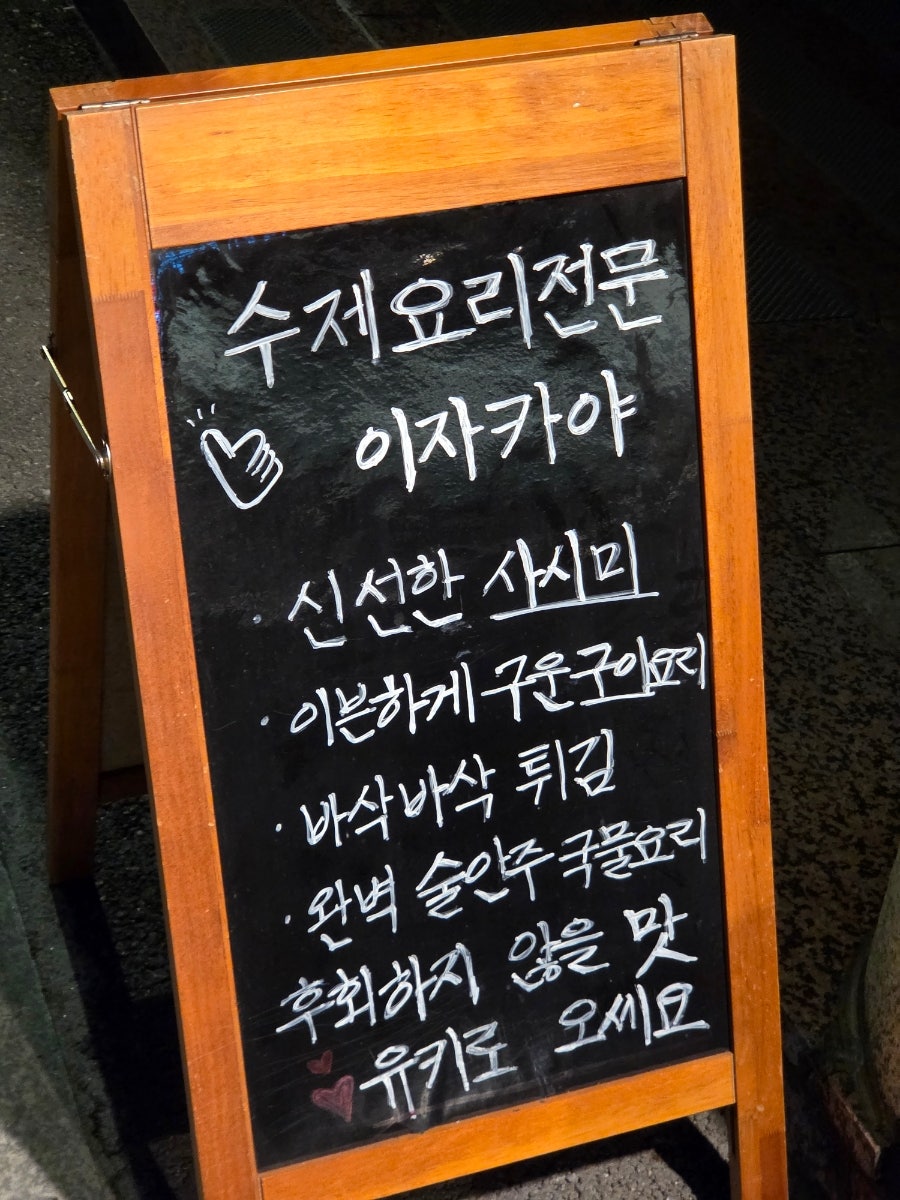 수제요리전문
이자카야
· 신선한 사시미
· 이븐하게 구운구이요리
· 바삭바삭 튀김
· 완벽 술안주 국물요리
후회하지 않을 맛
유키로 오세요